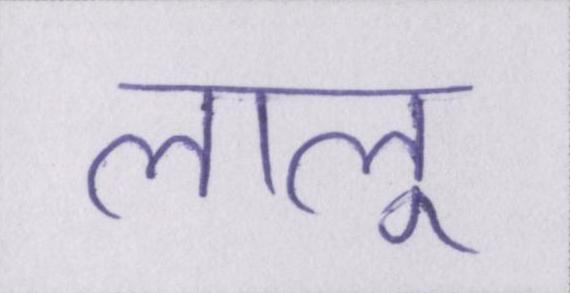 लालू